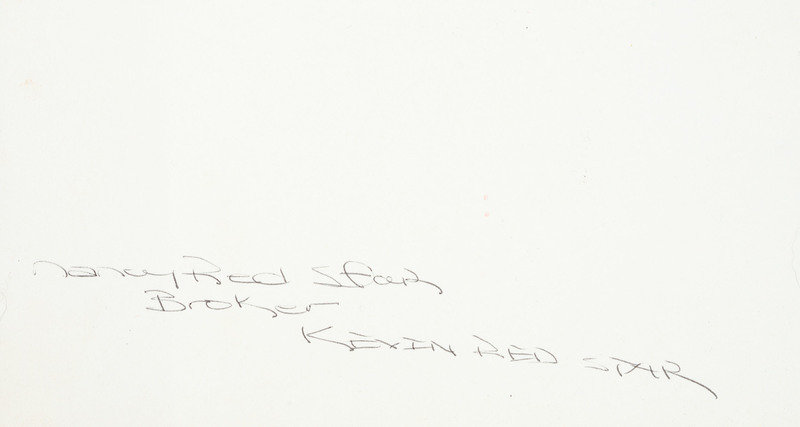 Nancy Red Star
Broker
KEVIN RED STAR